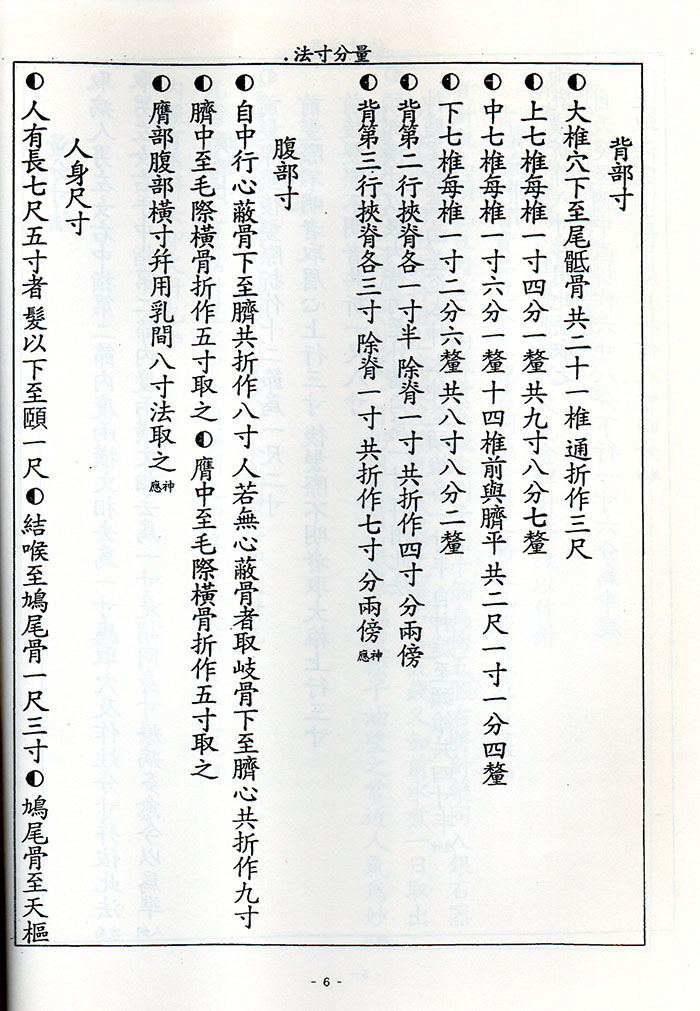 量分寸法.
背部寸
◐ 大椎穴下至尾骶骨 共二十一椎 通折作三尺
◐ 上七椎每椎一寸四分一釐 共九寸八分七釐
◐ 中七椎每椎一寸六分一釐 十四椎前與臍平 共二尺一寸一分四釐
◐ 下七椎每椎一寸二分六釐 共八寸八分二釐
◐ 背第二行挾脊各一寸半 除脊一寸 共折作四寸 分兩傍
◐ 背第三行挾脊各三寸 除脊一寸 共折作七寸 分兩傍 神應
腹部寸
◐ 自中行心蔽骨下至臍共折作八寸 人若無心蔽骨者取岐骨下至臍心共折作九寸
◐ 臍中至毛際橫骨折作五寸取之 ◐ 膺中至毛際橫骨折作五寸取之
◐ 膺部腹部橫寸幷用乳間 八寸法取之 神應
人身尺寸
◐ 人有長七尺五寸者 髮以下至頤一尺 ◐ 結喉至鳩尾骨一尺三寸 ◐ 鳩尾骨至天樞
- 6 -